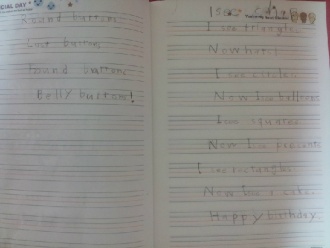 CIAL DAY
Round button.
Coat button
Round button
Belly button!
I see
I see triangles.
Now hats!
I see circles.
Now I see balloons
I see squares
Now I see presents
I see rectangles
Now I see a cake.
Happy birthday